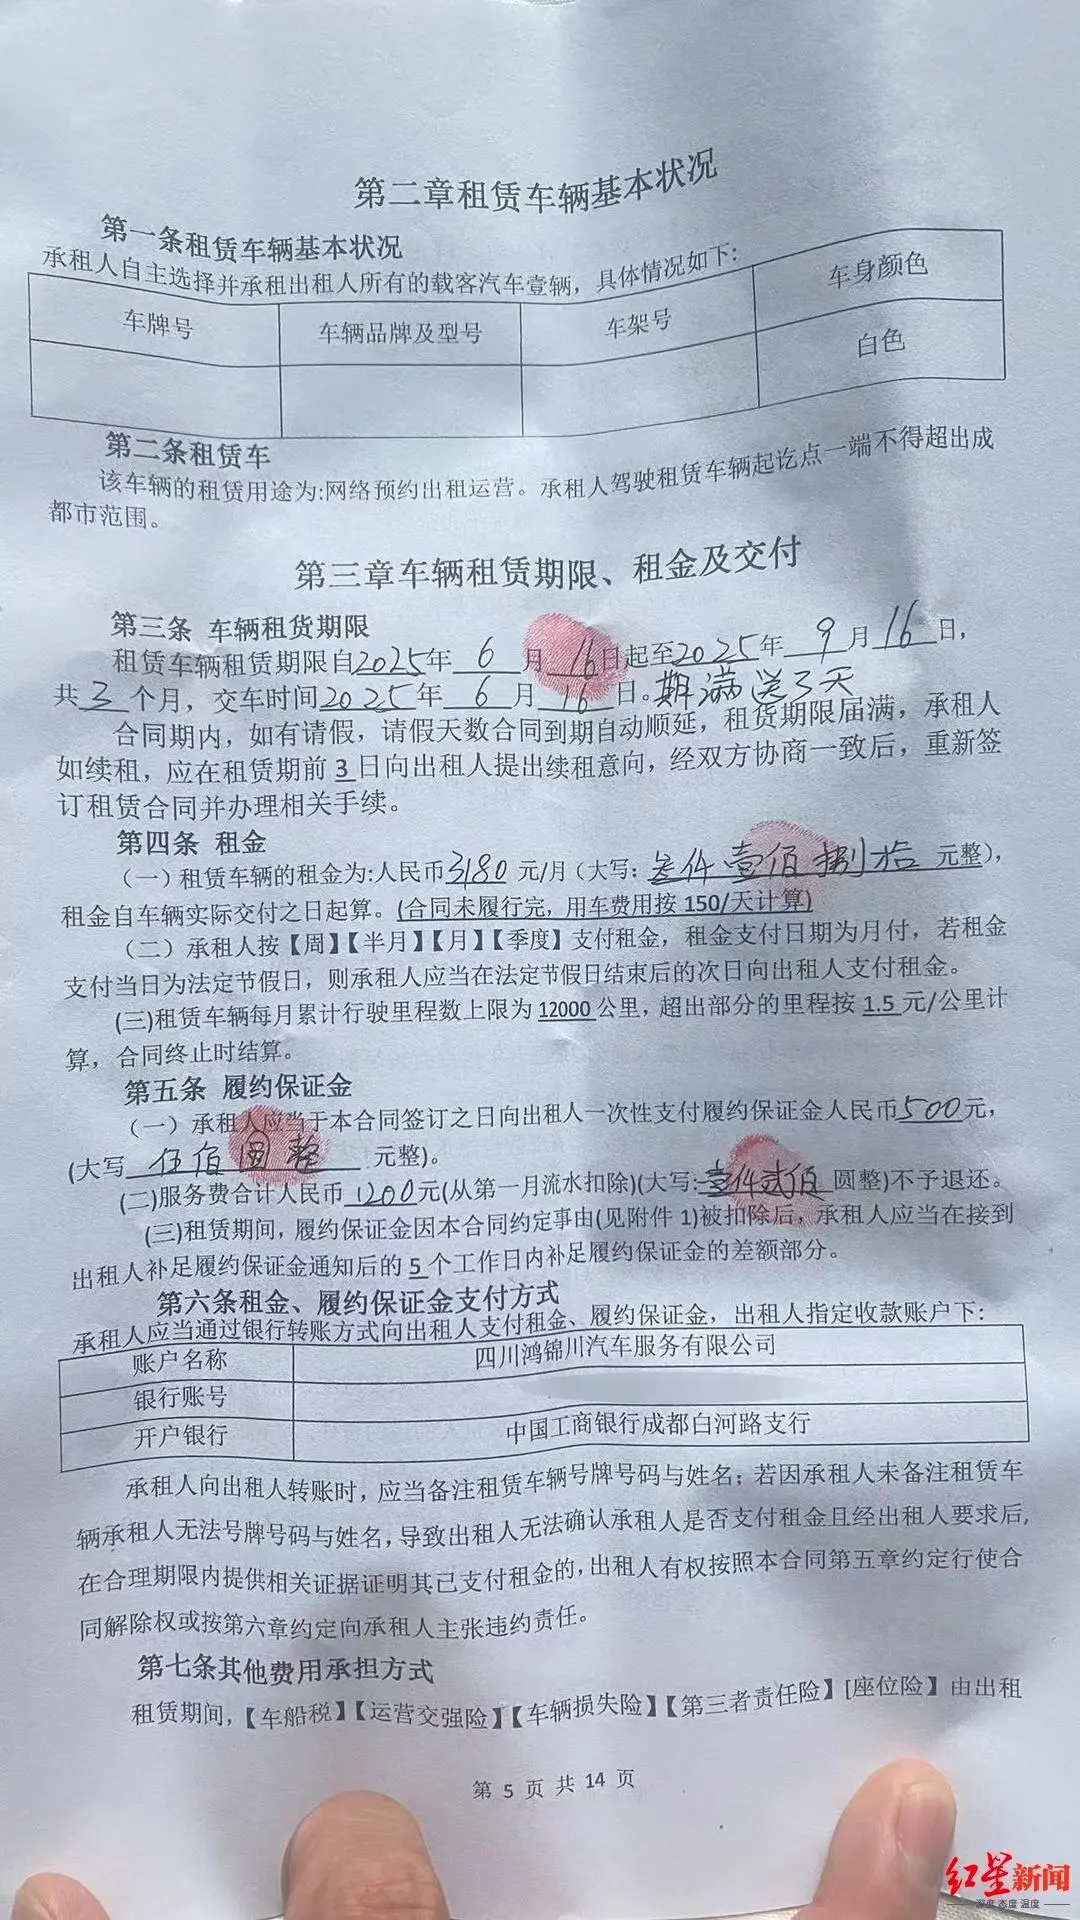 第二章租赁车辆基本状况
第一条租赁车辆基本状况
承租人自主选择并承租出租人所有的载客汽车壹辆，具体情况如下:
车牌号 车辆品牌及型号 车架号 车身颜色
白色
第二条租赁车
该车辆的租赁用途为:网络预约出租运营。承租人驾驶租赁车辆起讫点一端不得超出成
都市范围。
第三章车辆租赁期限、租金及交付
第三条 车辆租赁期限
租赁车辆租赁期限自2025年 6 月 16日起至2025年 9 月 16日，
共 3 个月，交车时间2025年 6 月 16 日。期满送3天
合同期内，如有请假，请假天数合同到期自动顺延，租赁期限届满，承租人
如续租，应在租赁期前 3 日向出租人提出续租意向，经双方协商一致后，重新签
订租赁合同并办理相关手续。
第四条 租金
（一）租赁车辆的租金为:人民币3180 元/月（大写：叁仟壹佰捌拾 元整），
租金自车辆实际交付之日起算。(合同未履行完，用车费用按 150/天计算)
（二）承租人按【周】【半月】【月】【季度】支付租金，租金支付日期为月付，若租金
支付当日为法定节假日，则承租人应当在法定节假日结束后的次日向出租人支付租金。
(三)租赁车辆每月累计行驶里程数上限为 12000 公里，超出部分的里程按 1.5 元/公里计
算，合同终止时结算。
第五条 履约保证金
（一）承租人应当于本合同签订之日向出租人一次性支付履约保证金人民币500元，
(大写 伍佰圆整 元整)。
(二)服务费合计人民币 1200元(从第一月流水扣除)(大写:壹仟贰佰 圆整)不予退还。
(三)租赁期间，履约保证金因本合同约定事由(见附件 1)被扣除后，承租人应当在接到
出租人补足履约保证金通知后的 5 个工作日内补足履约保证金的差额部分。
第六条租金、履约保证金支付方式
承租人应当通过银行转账方式向出租人支付租金、履约保证金，出租人指定收款账户下:
账户名称 四川鸿锦川汽车服务有限公司
银行账号
开户银行 中国工商银行成都白河路支行
承租人向出租人转账时，应当备注租赁车辆号牌号码与姓名；若因承租人未备注租赁车
辆承租人无法号牌号码与姓名，导致出租人无法确认承租人是否支付租金且经出租人要求后，
在合理期限内提供相关证据证明其已支付租金的，出租人有权按照本合同第五章约定行使合
同解除权或按第六章约定向承租人主张违约责任。
第七条其他费用承担方式
租赁期间，【车船税】【运营交强险】【车辆损失险】【第三者责任险】[座位险】由出租
第 5 页 共 14 页
红星新闻
深度 态度 温度